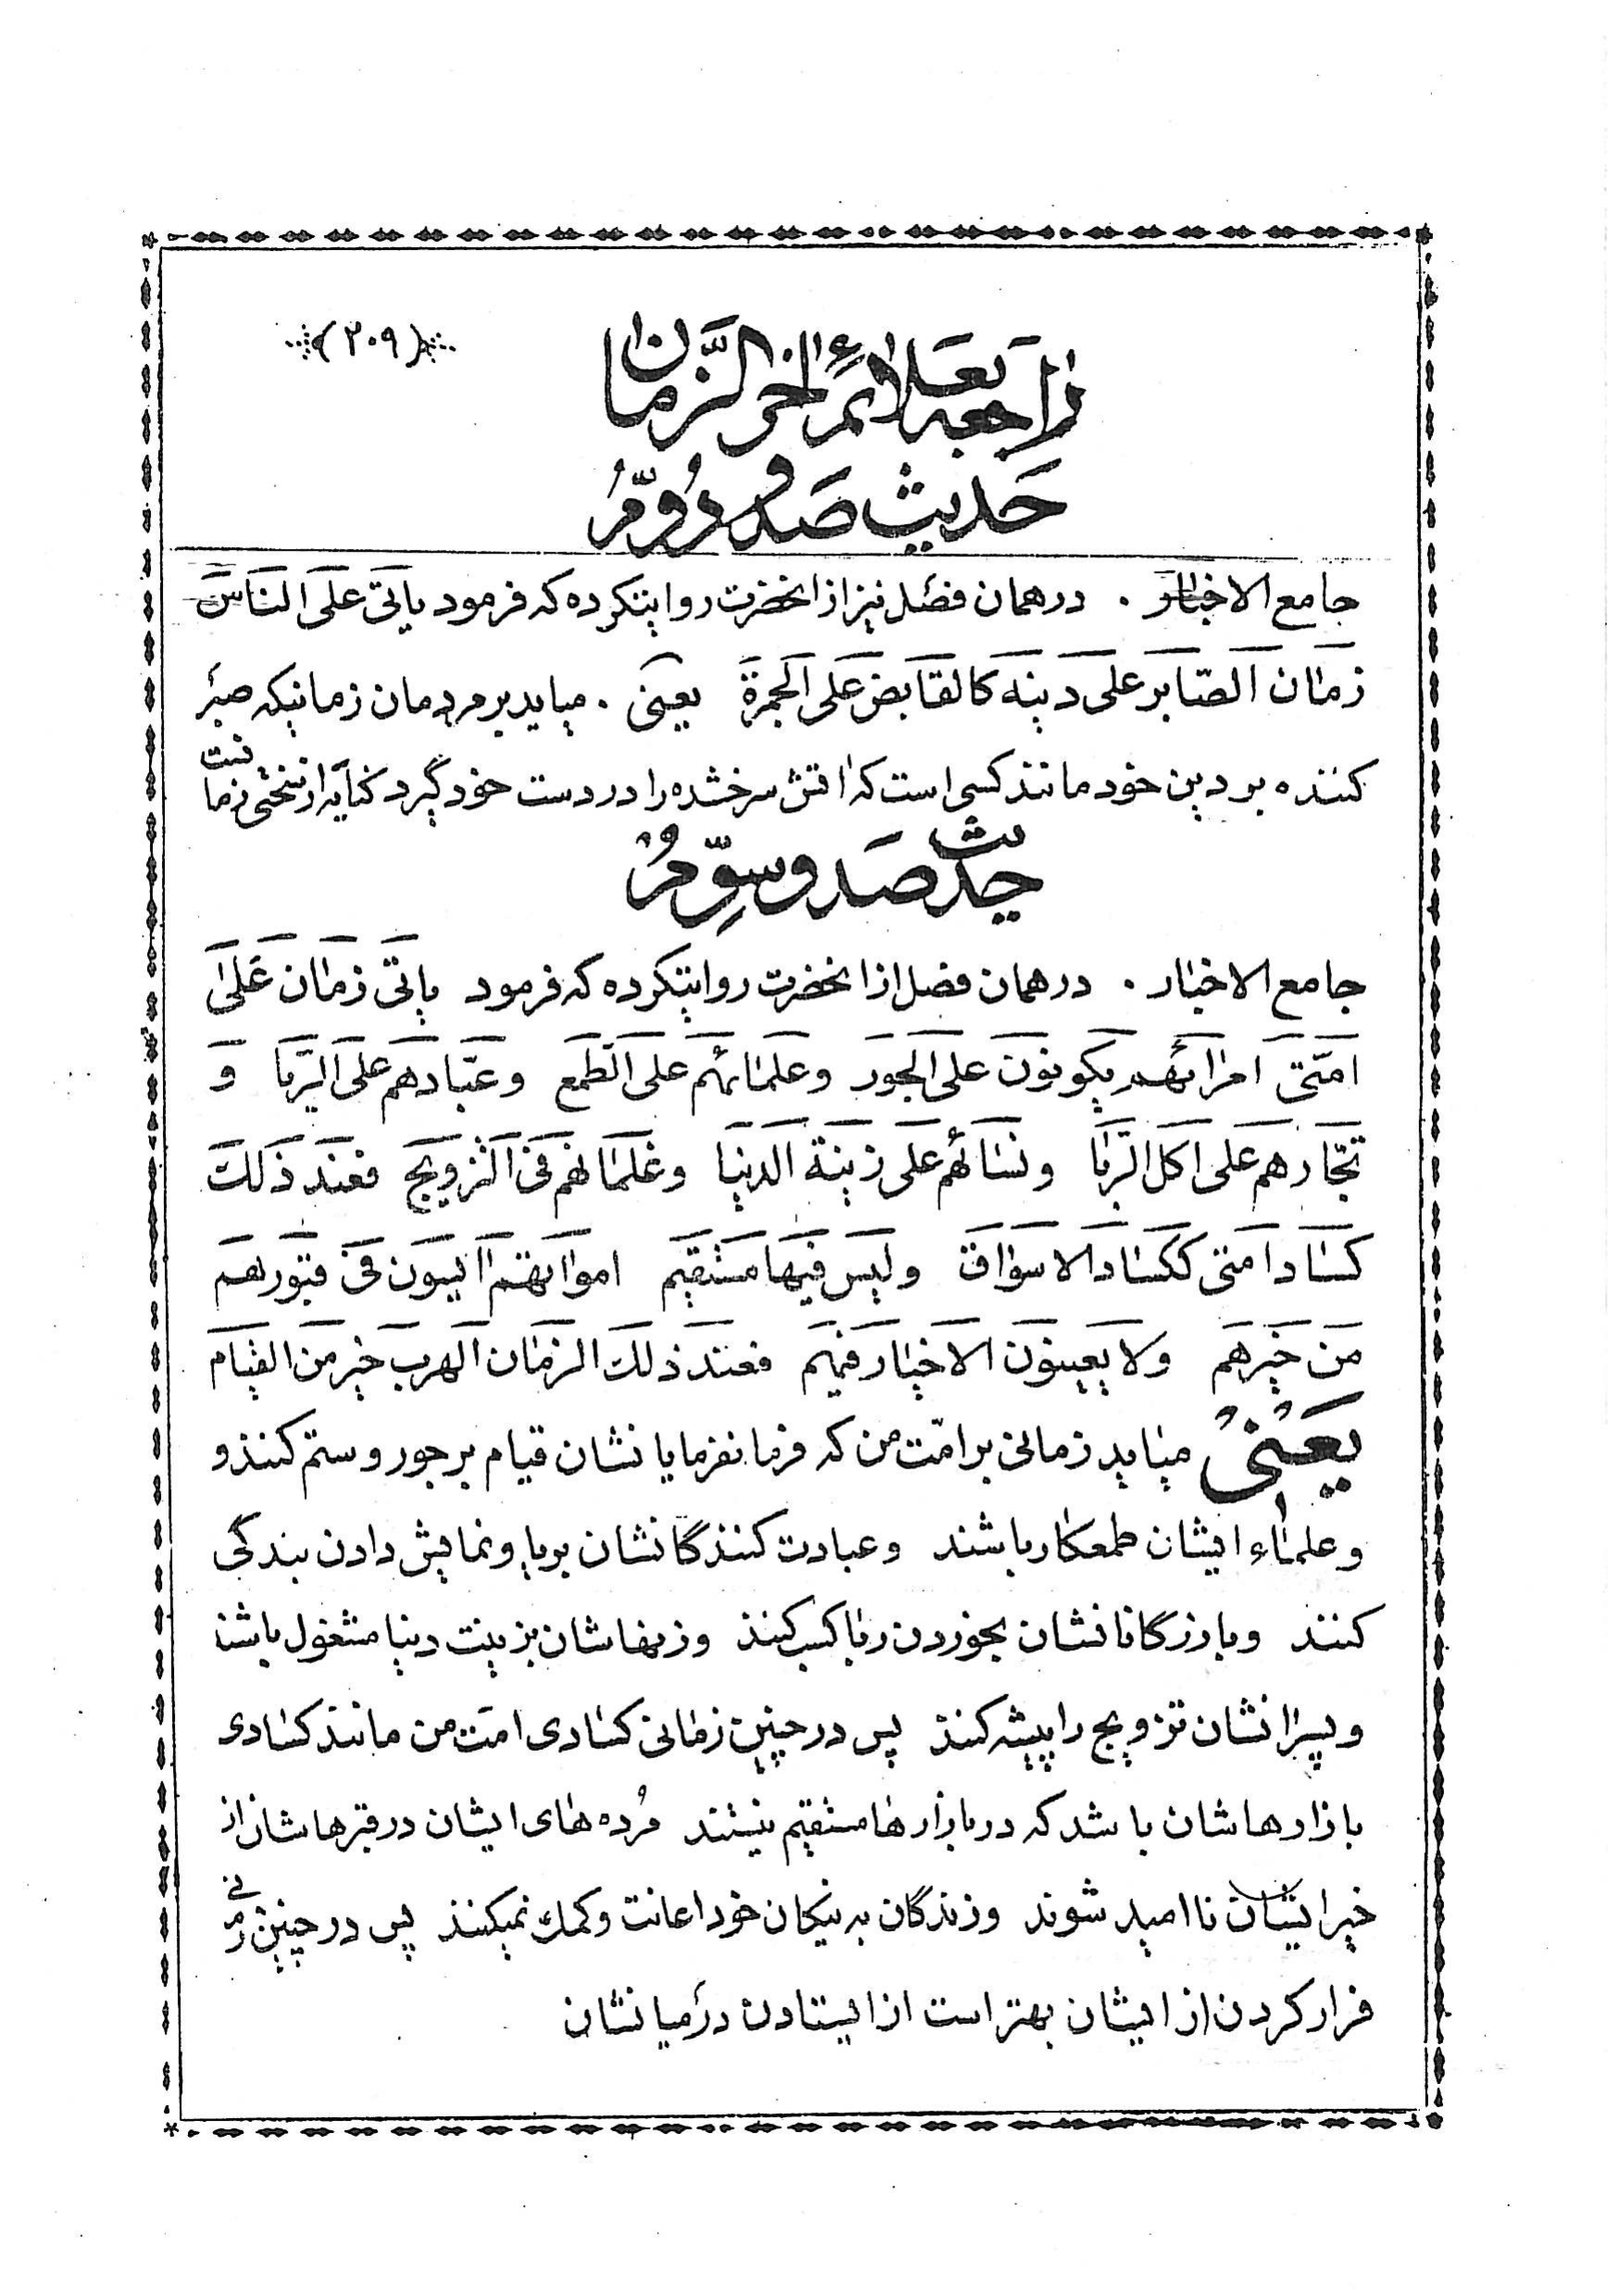 (۲۰۹)
راجعه بعلائم اخر الزَّمان
حَدیث صَد و دُوّمُ
جامع الاخبار . در همان فصل نیز از انحضرت روایتکرده که فرمود یاتی علی الناس
زمان الصّابر علی دینه کالقابض علی الجمرة یعنی . میاید بر مردمان زمانیکه صبر
کننده بر دین خود مانند کسی است که اتش سرخشده را در دست خود گیرد کنایه از سختی زمانست
حدیث صَد و سِوّمُ
جامع الاخبار . در همان فصل از انحضرت روایتکرده که فرمود یاتی زمان علی
امّتی امرائهم یکونون علی الجور و علمائهم علی الطّمع و عبّادهم علی الرّیا و
تجّارهم علی اکل الرّبا و نسائهم علی زینة الدنیا و غلمانهم فی التزویج فعند ذلک
کساد امتی ککساد الاسواق و لیس فیها مستقیم امواتهم اایسون فی قبورهم
من خیرهم ولا یعینون الاخیار فیهم فعند ذلک الزمان الهرب خیر من القیام
یَعنیُ میاید زمانی بر امّت من که فرمانفرمایانشان قیام بر جور و ستم کنند و
و علماء ایشان طمعکار باشند و عبادت کنندگانشان بریا و نمایش دادن بندگی
کنند و بازرگانانشان بخوردن ربا کسب کنند و زنهاشان بزینت دنیا مشغول باشند
و پسرانشان تزویج را پیشه کنند پس در چنین زمانی کسادی امت من مانند کسادی
بازارهاشان باشد که در بازارها مستقیم نیستند مُرده های ایشان در قبرهاشان از
خیر ایشان ناامید شوند و زندگان به نیکان خود اعانت و کمک نمیکنند پس در چنین زمانی
فرار کردن از ایشان بهتر است از ایستادن در میانشان